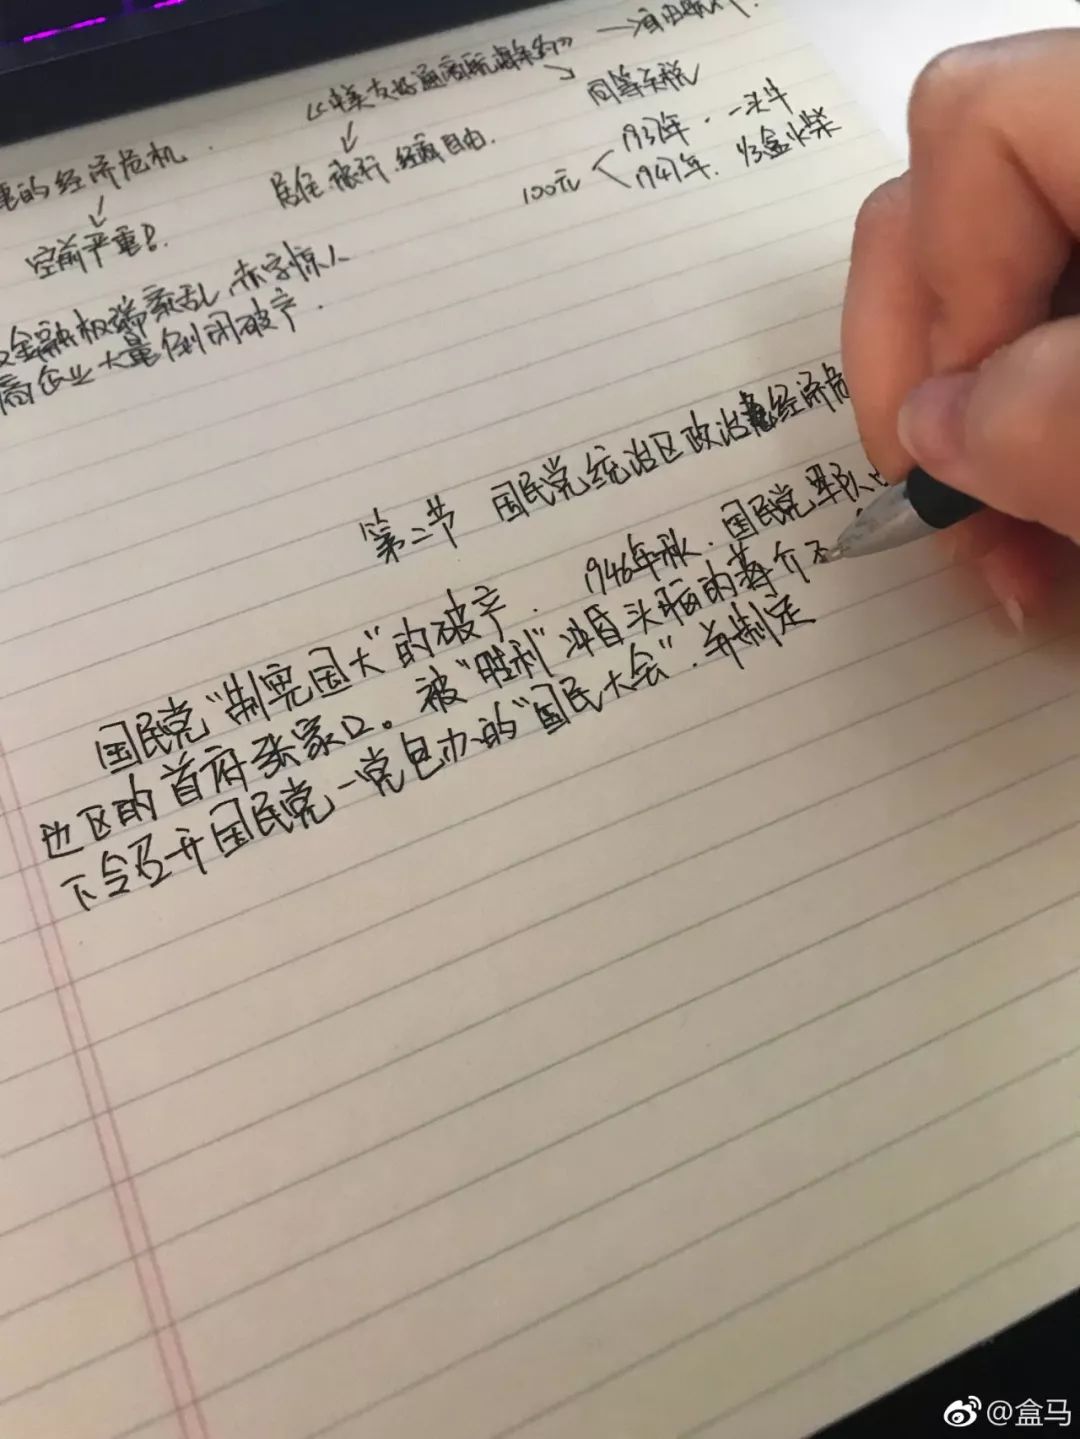 《中美友好通商航海条约》→自由
同等关税
居住.旅行.经商自由.
100元
1937年.一头牛
1947年.1/3盒火柴
的经济危机.
空前严重!.
金融极端紊乱,赤字惊人
商企业大量倒闭破产.
第二节 国民党统治区政治经济危
国民党“制宪国大”的破产. 1946年秋.国民党军队
边区的首府张家口。被“胜利”冲昏头脑的蒋介
下令召开国民党一党包办的“国民大会”.并制定
@盒马